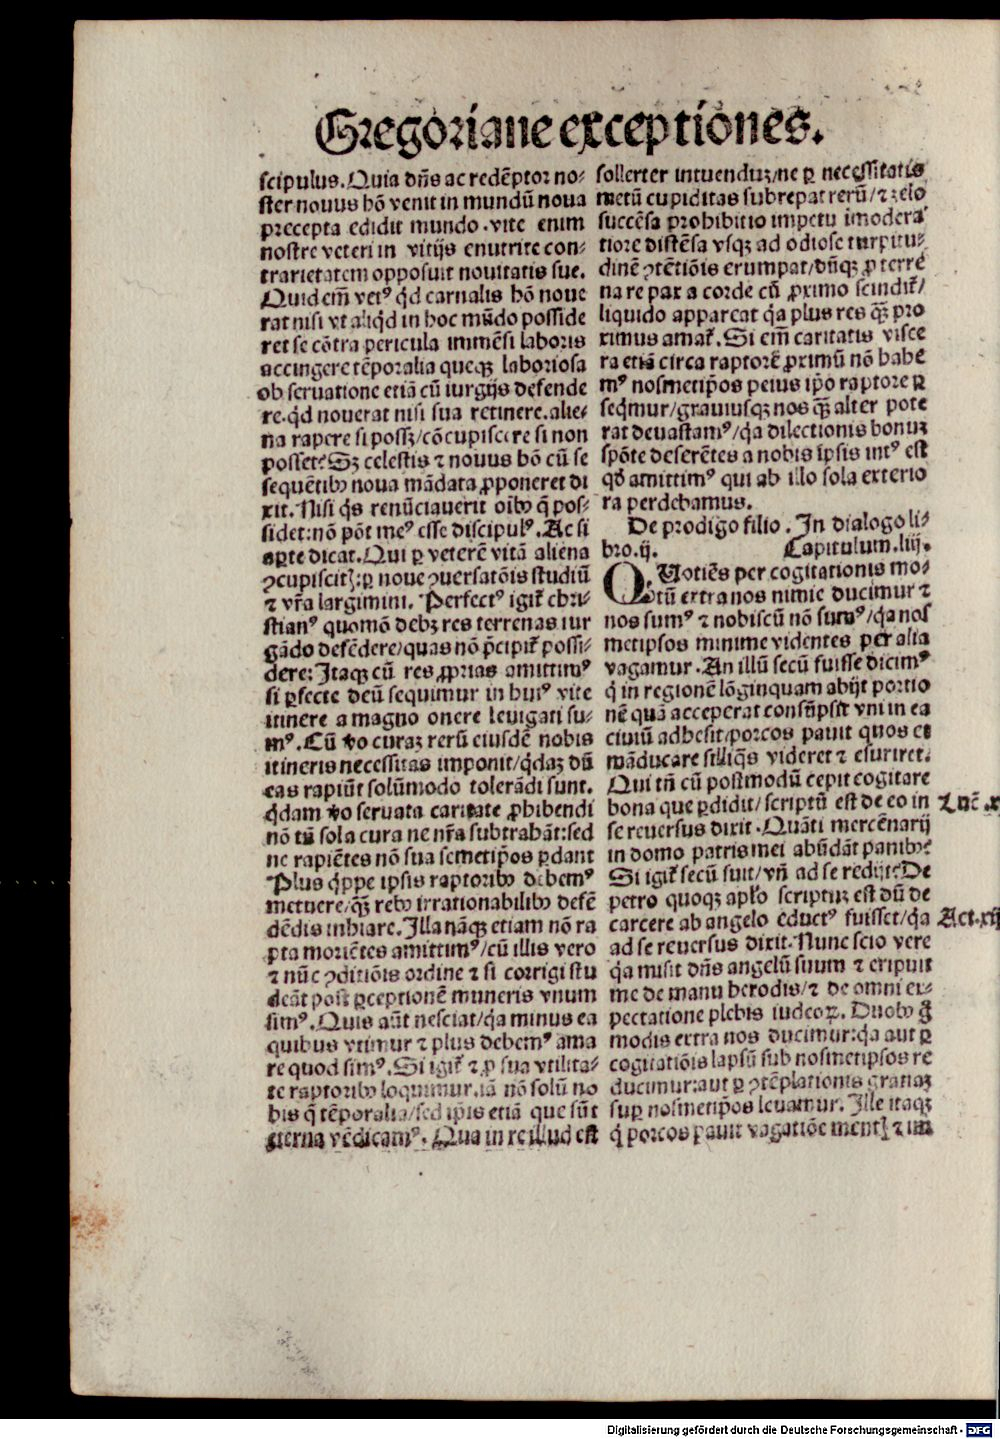 Gregoriane exceptiones.
scipulus. Quia dn̄s ac redēptor no⸗
ster nouus hō venit in mundū noua
precepta edidit mundo. vite enim
nostre veteri in vitijs enutrite con⸗
trarietatem opposuit nouitatis sue.
Quid em̄ vetꝰ q̇d carnalis hō noue
rat nisi vt aliq̇d in hoc mūdo posside
ret se cōtra pericula immēsi laboris
accingere tēporalia queqꝫ laboriosa
ob seruatione etiā cū iurgijs defende
re. q̇d nouerat nisi sua retinere. alie⸗
na rapere si possꝫ/cōcupiscere si non
posset? Sꝫ celestis ⁊ nouus hō cū se
sequētibꝰ noua mādata ꝓponeret di
xit. Nisi q̇s renūciauerit oībꝰ q̄ pos⸗
sidet: nō pōt meꝰ esse discipulꝰ. Ac si
aꝑte dicat. Qui ꝑ veterē vitā aliena
ꝯcupiscitꝭ: ꝑ noue ꝯuersatōis studiū
⁊ vr̄a largimini. Perfectꝰ igit᷑ chri⸗
stianꝰ quomō debꝫ res terrenas iur
gādo defēdere/quas nō p̄cipit᷑ possi⸗
dere: Itaqꝫ cū res ꝓprias amittimꝰ
si ꝑfecte deū sequimur in huiꝰ vite
itinere a magno onere leuigati su⸗
mꝰ. Cū vo curaꝫ rerū eiusdē nobis
itineris necessitas imponit/q̇daꝫ dū
eas rapiūt solūmodo tolerādi sunt.
q̇dam vo seruata caritate ꝓhibendi
nō tn̄ sola cura ne nr̄a subtrahāt: sed
ne rapiētes nō sua semetip̄os ꝑdant
Plus q̇ppe ipsis raptoribꝰ debemꝰ
metuere/q̄ꝫ rebꝰ irrationabilibꝰ defē
dēdis inhiare. Illa nāqꝫ etiam nō ra
pta moriētes amittimꝰ/cū illis vero
⁊ nūc ꝯditiōis ordine ⁊ si corrigi stu
deāt post ꝑceptionē muneris vnum
simꝰ. Quis aūt nesciat/q̇a minus ea
quibus vtimur ⁊ plus debemꝰ ama
re quod simꝰ. Si igit᷑ ⁊ ꝓ sua vtilita⸗
te raptoribꝰ loquimur. iā nō solū no
bis q̄ tēporalia/sed ip̄is etiā que sūt
eterna vēdicamꝰ. Qua in re illud est
sollerter intuenduꝫ/ne ꝑ necessitatis
metū cupiditas subrepat rerū/⁊ zelo
succēsa prohibitio impetu īmodera
tiore distēsa vsqꝫ ad odiose turpitu⸗
dinē ꝯtētiōis erumpat/dūqꝫ ꝓ terre
na re pax a corde cū ꝓximo scindit᷑/
liquido appareat q̇a plus res q̄ꝫ pro
ximus amat᷑. Si em̄ caritatis visce
ra etiā circa raptorē ꝓximū nō habē
mꝰ nosmetip̄os peius ip̄o raptore ꝑ
seq̇mur/grauiusqꝫ nos q̄ꝫ alter pote
rat deuastamꝰ/q̇a dilectionis bonuꝫ
spōte deserētes a nobis īpsis intꝰ est
qd̄ amittimꝰ qui ab illo sola exterio
ra perdebamus.
De prodigo filio. In dialogo li⸗
bro.ij. Capitulum.liij.
QUotiēs per cogitationis mo⸗
tū extra nos nimie ducimur ⁊
nos sumꝰ ⁊ nobiscū nō sumꝰ/q̇a nos
metipsos minime videntes per alia
vagamur. An illū secū fuisse dicimꝰ
q̇ in regionē lōginquam abijt portio
nē quā acceperat consūpsit vni in ea
ciuiū adhesit/porcos pauit quos et
māducare siliq̄s videret ⁊ esuriret.
Qui tn̄ cū postmodū cepit cogitare
bona que ꝑdidit/scriptū est de eo in
se reuersus dixit. Quāti mercēnarij
in domo patris mei abūdāt panibꝰ?
Si igit᷑ secū fuit/vn̄ ad se redijt? De
petro quoqꝫ apl̄o scriptuꝫ est dū de
carcere ab angelo eductꝰ fuisset/q̇a
ad se reuersus dixit. Nunc scio vere
q̇a misit dn̄s angelū suum ⁊ eripuit
me de manu herodis/⁊ de omni ex⸗
pectatione plebis iudeoꝝ. Duobꝰ g̊
modis extra nos ducimur: q̇a aut ꝑ
cogitatiōis lapsū sub nosmetipsos re
ducimur: aut ꝑ ꝯtēplationis gratiaꝫ
suꝑ nosmetip̄os leuamur. Ille itaqꝫ
q̇ porcos pauit vagatiōe mentꝭ ⁊ im
Luc̄.x
Act.xij
Digitalisierung gefördert durch die Deutsche Forschungsgemeinschaft - DFG